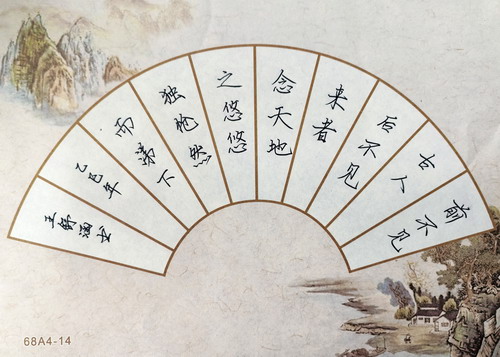 前不见
古人
后不见
来者
念天地
之悠悠
独怆然
而涕下
乙巳年
王郭涵书
68A4-14